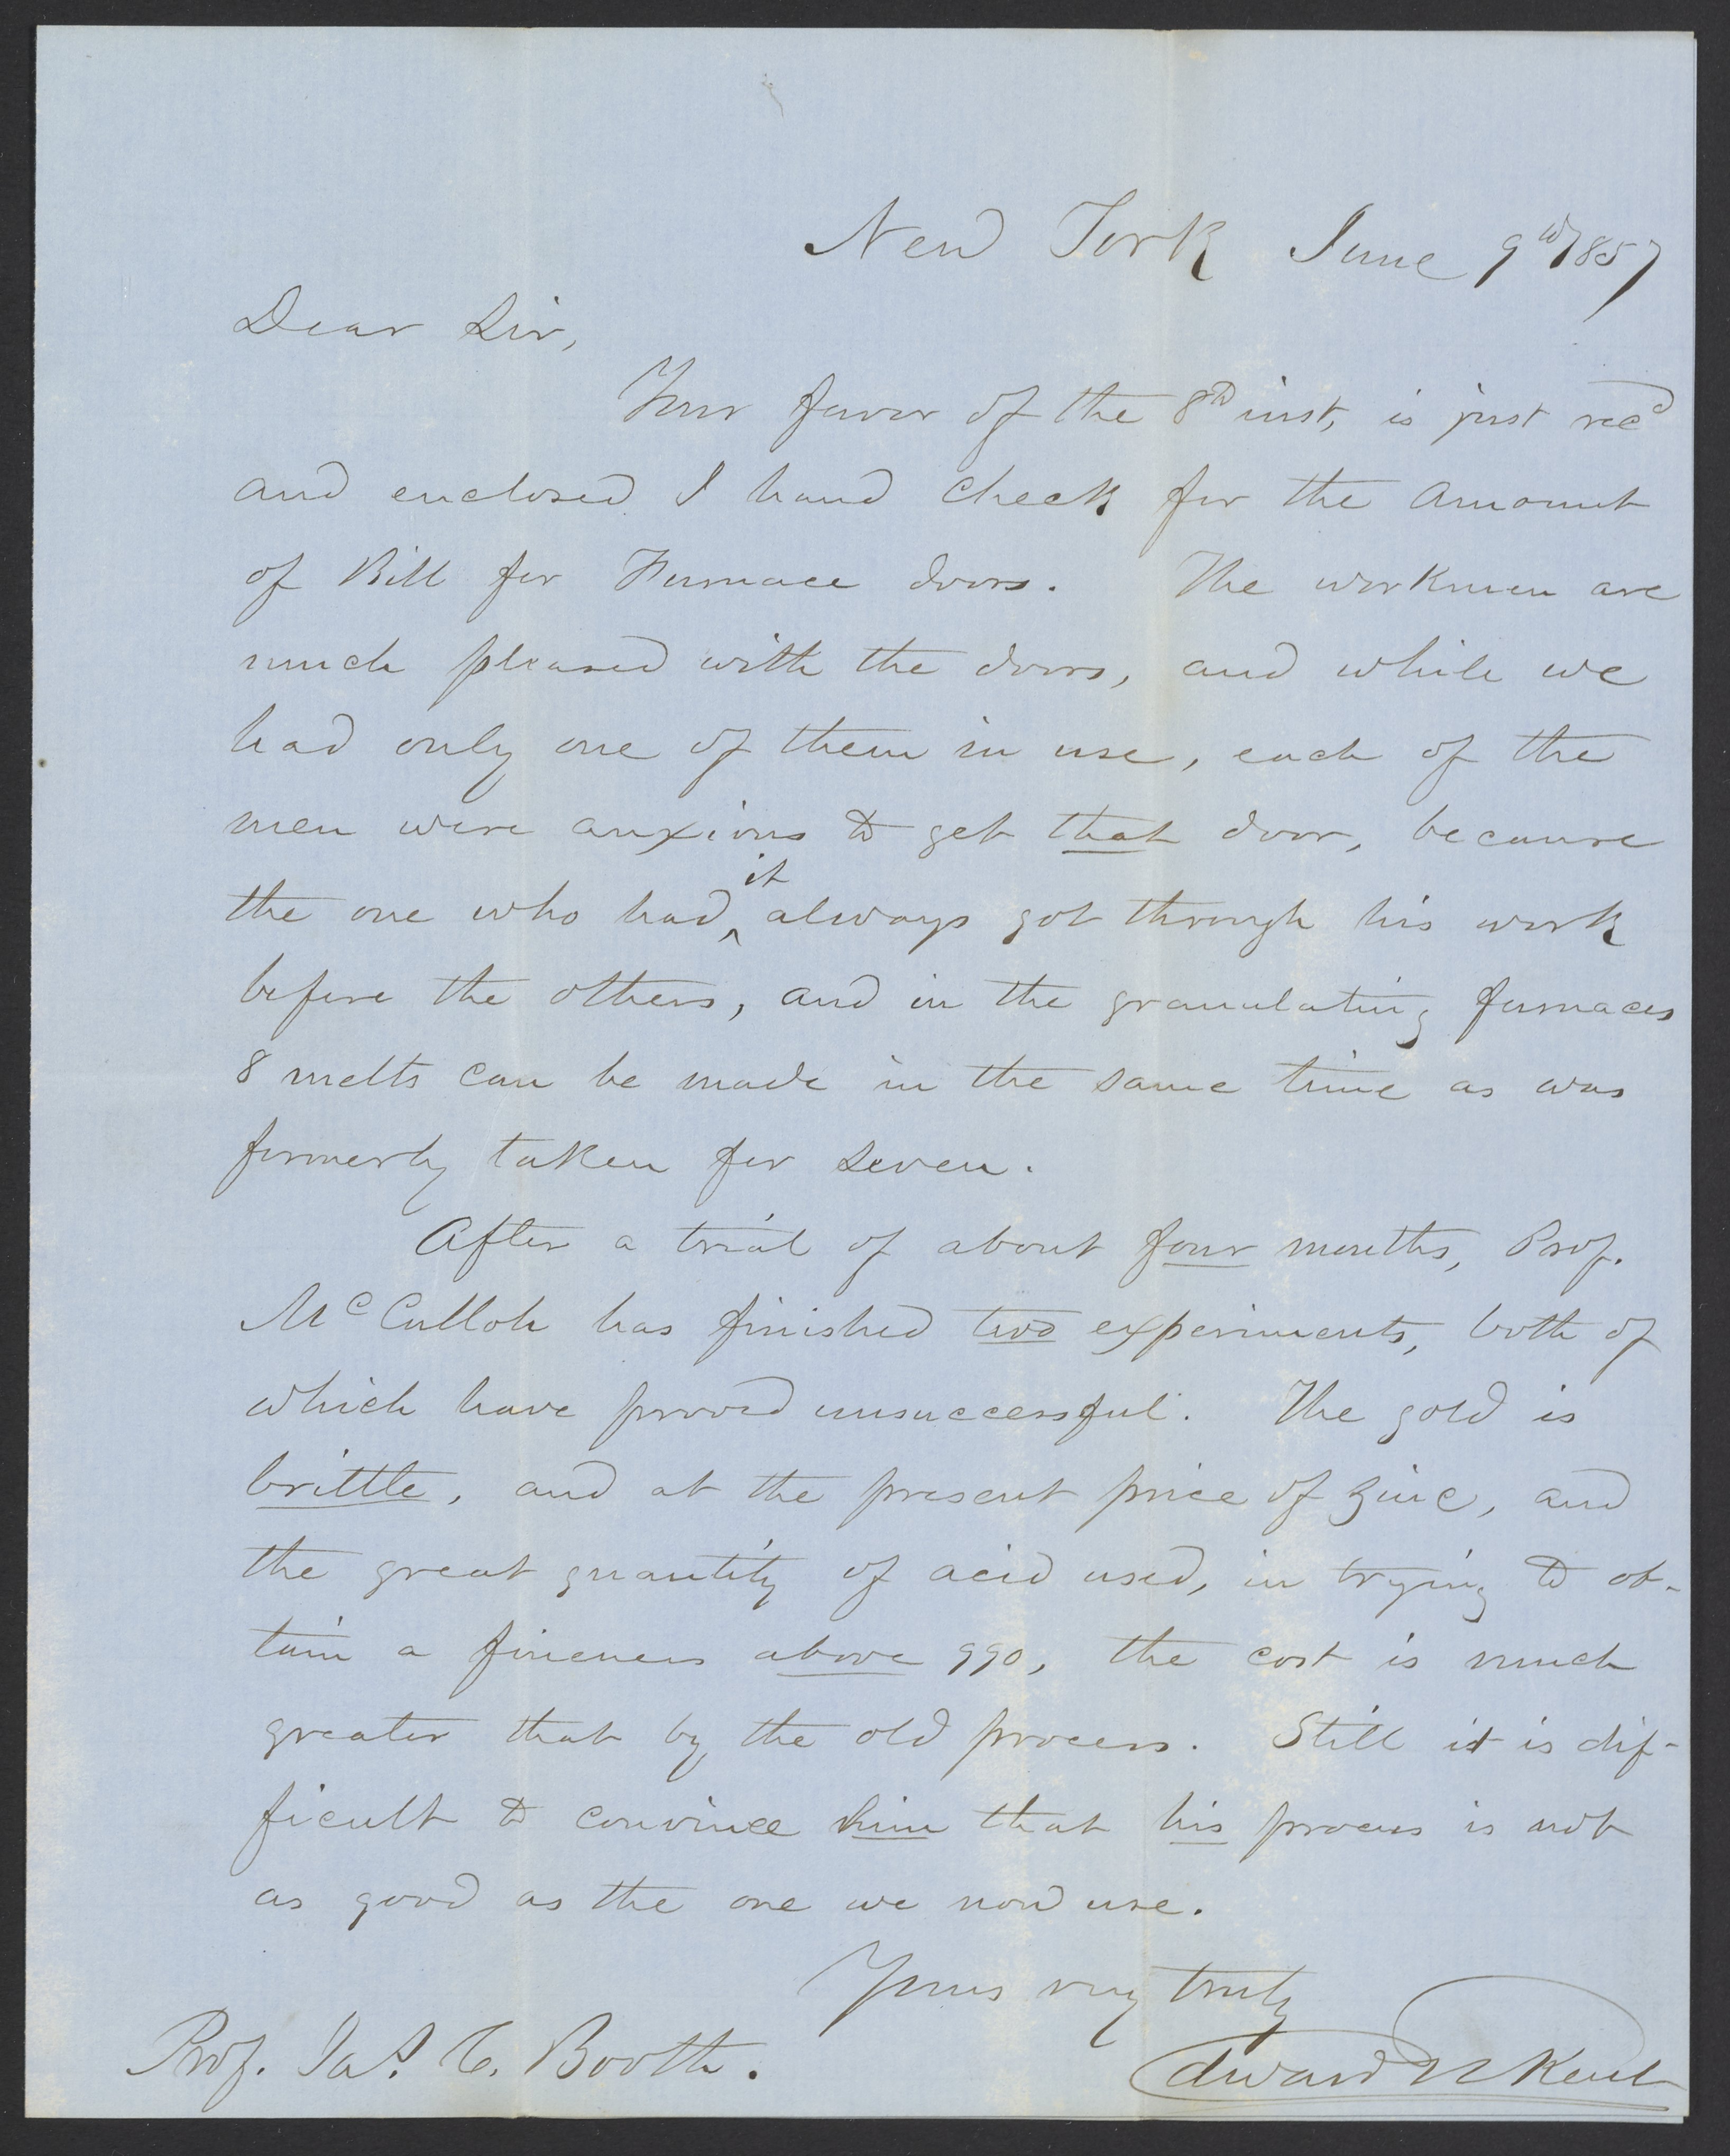 New York June 9th 1857
Dear Sir,
Your favor of the 8th inst, is just recd
and enclosed I hand check for the amount
of Bill for Furnace doors. The workmen are
much pleased with the doors, and while we
had only one of them in use, each of the
men were anxious to get that door, because
the one who had ^it always got through his work
before the others, and in the granulating furnaces
8 melts can be made in the same time as was
formerly taken for seven.
After a trial of about four months, Prof.
McCulloh has finished two experiments, both of
which have proved unsuccessful. The gold is
brittle, and at the present price of zinc, and
the great quantity of acid used, in trying to ob-
tain a fineness above 990, the cost is much
greater that by the old process. Still it is dif-
ficult to convince him that his process is not
as good as the one we now use.
Yours very truly
Edward N Kent
Prof. Jas. C. Booth.